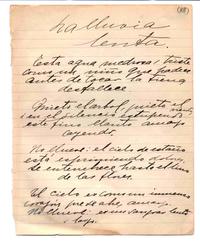 (118)
La lluvia
lenta.
Esta agua medrosa y triste
como un niño que padece
antes de tocar la tierra
desfallece
Quieto el árbol, quieto el viento
¡y en el silencio estupendo
este fino llanto amargo
cayendo!
No llueve: el cielo
está
de enternece hasta el limo
de las flores.
El cielo es como un inmenso
corazón que se abre, amargo.
No llueve: es un sangrar lento
y largo.